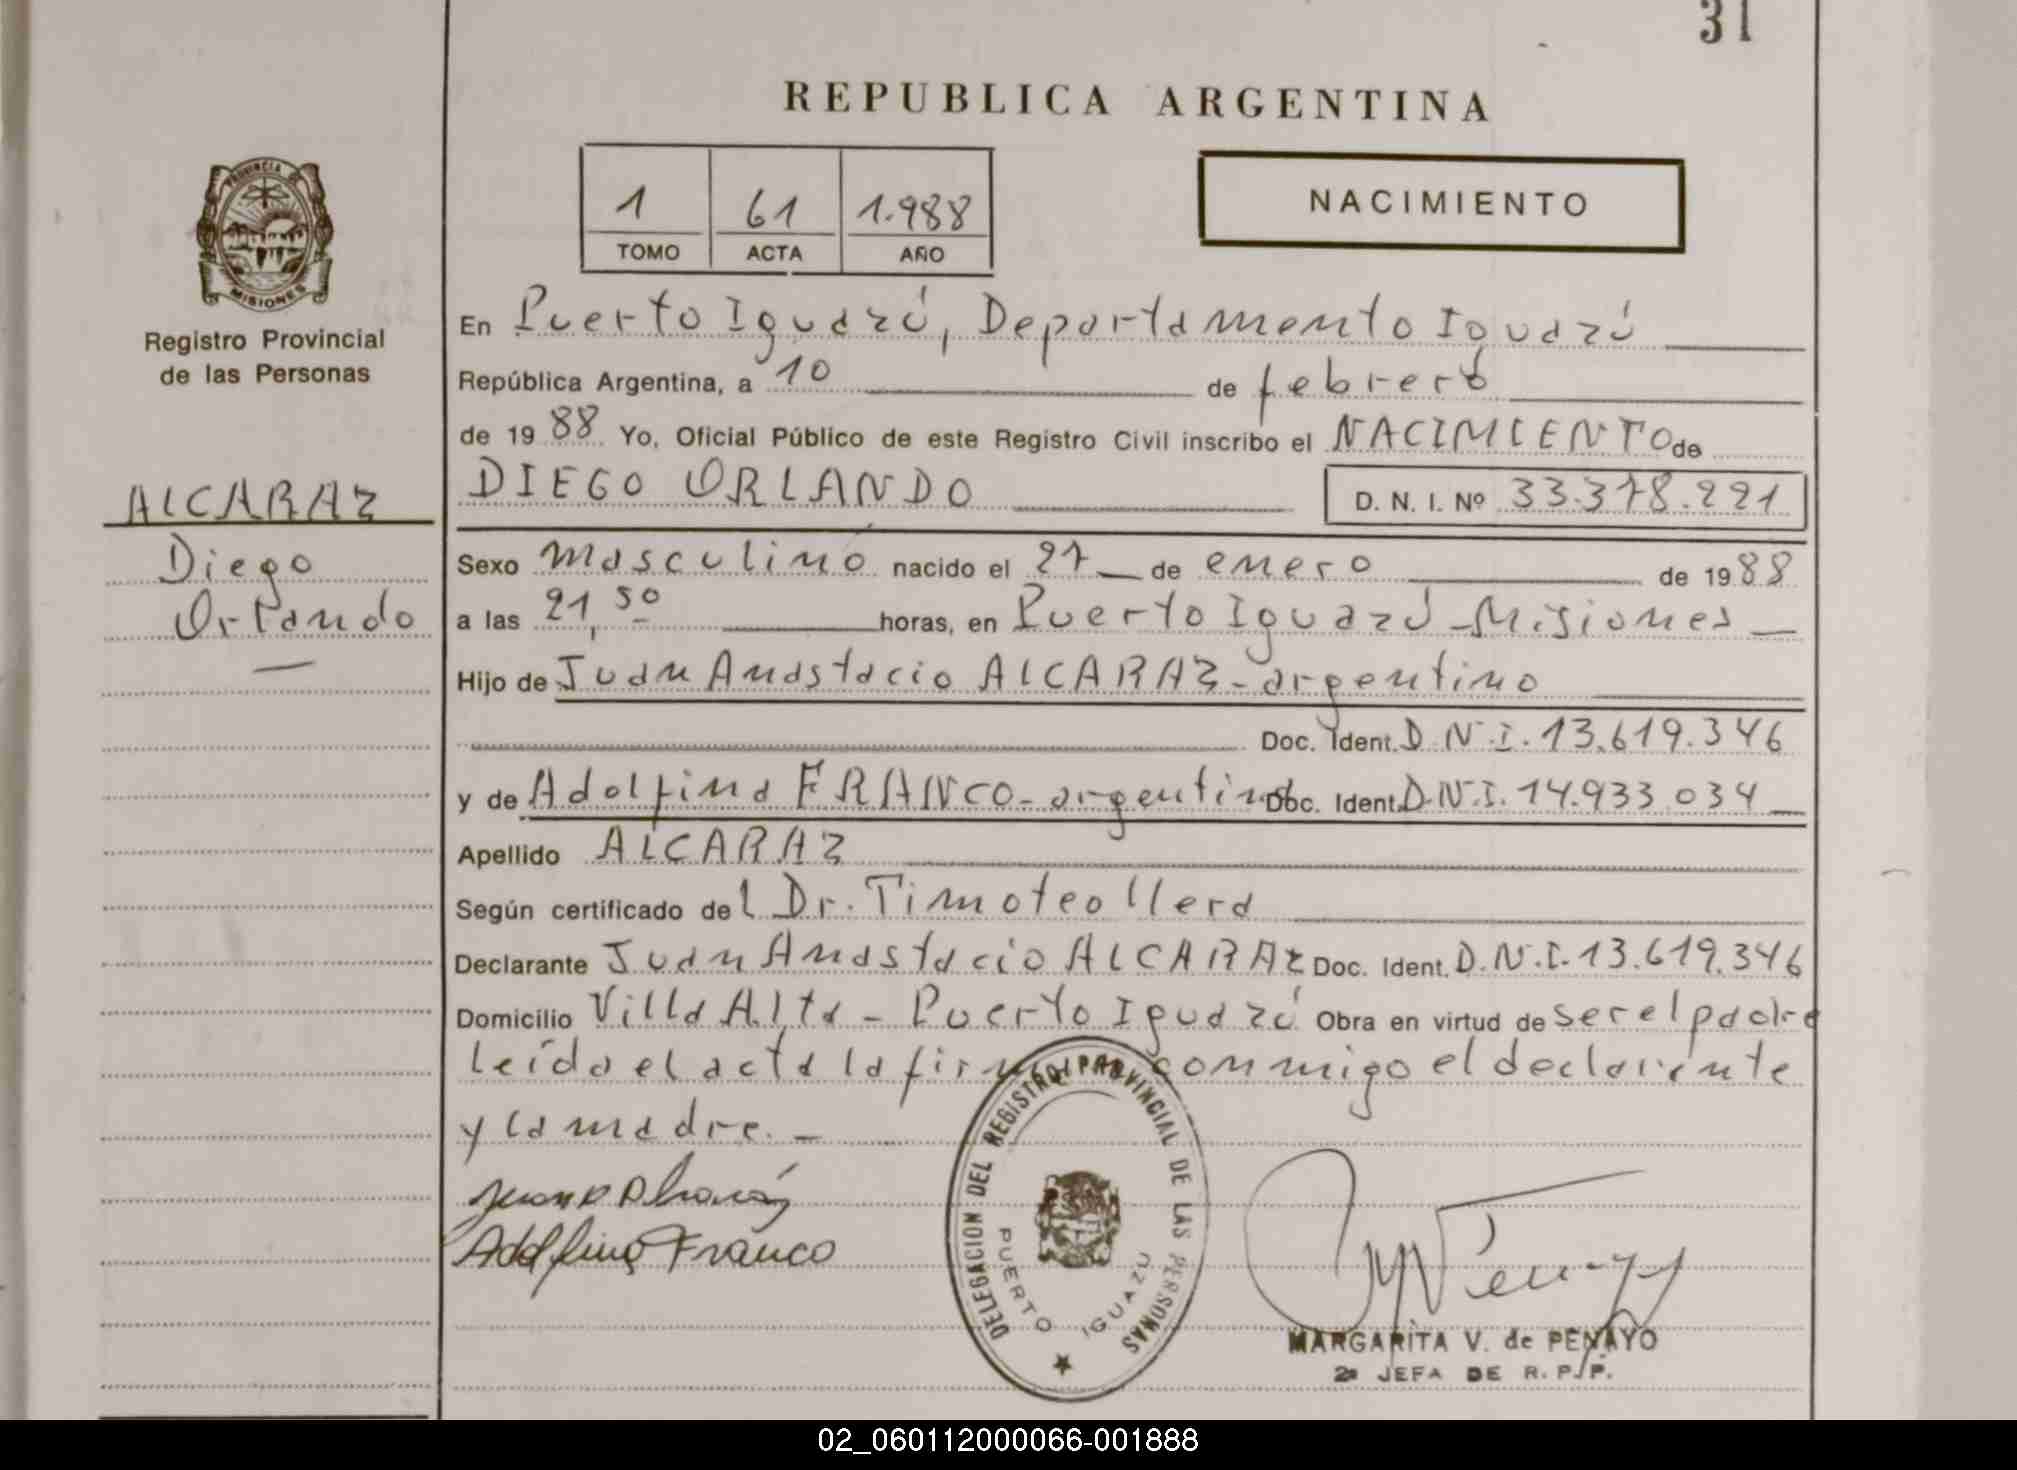 31
REPUBLICA ARGENTINA
PROVINCIA DE
MISIONES
Registro Provincial
de las Personas
1 61 1.988
TOMO ACTA AÑO
NACIMIENTO
En Puerto Iguazú, Departamento Iguazú
República Argentina, a 10 de febrero
de 19 88 Yo, Oficial Público de este Registro Civil inscribo el NACIMIENTO de
DIEGO ORLANDO D. N. I. Nº 33.378.221
ALCARAZ
Diego
Orlando
Sexo masculino nacido el 27 de enero de 19 88
a las 21,50 horas, en Puerto Iguazú - Misiones
Hijo de Juan Anastacio ALCARAZ - argentino
Doc. Ident. D.N.I. 13.619.346
y de Adolfina FRANCO - argentina Doc. Ident. D.N.I. 14.933.034
Apellido ALCARAZ
Según certificado del Dr. Timoteo Llera
Declarante Juan Anastacio ALCARAZ Doc. Ident. D.N.I. 13.619.346
Domicilio Villa Alta - Puerto Iguazú Obra en virtud de ser el padre
leída el acta la firman conmigo el declarante
y la madre. -
Adolfina Franco
DELEGACION DEL REGISTRO PROVINCIAL DE LAS PERSONAS
PUERTO IGUAZU
MARGARITA V. de PENAYO
2ª JEFA DE R. P. P.
02_060112000066-001888